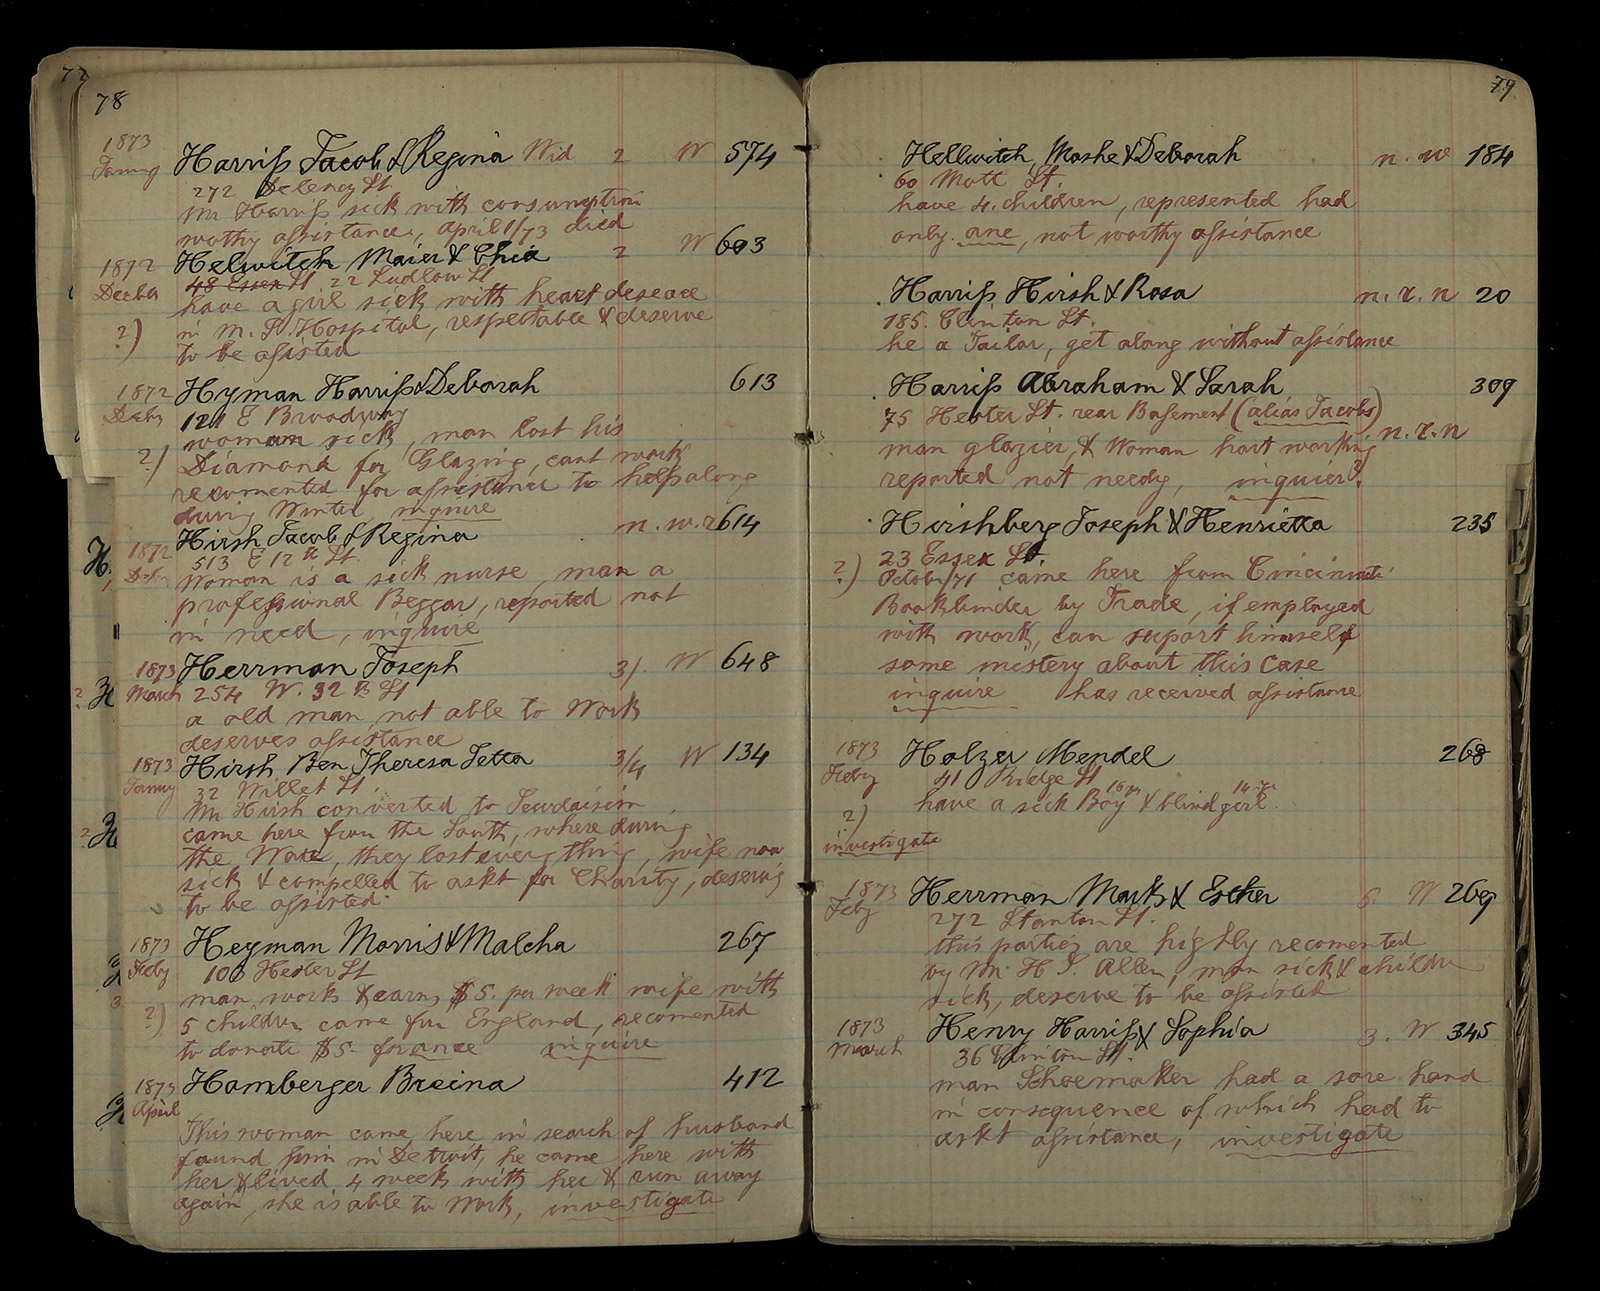 77
78
1873 Harriß Jacob & Regina Wid 2 W 574
272 Delency St
Mr Harriß sick with consumption
wothy assistance, april 1/73 died
1872 Helwitch Maier & Chia 2 W 603
Decbr 48 Essex St 22 Ludlow St
have a girl sick with heart deseace
?) in M. S. Hospital, respectable & deserve
to be assisted
1872 Hyman Harriß & Deborah 613
Decbr 121 E Broadway
woman sick, man lost his
?) Diamond for Glazing, cant work
recomented for assistance to help along
during Winter, inquire
1872 Hirsh Jacob & Regina n. w. r 614
513 E 12th St.
Woman is a sick nurse, man a
professional Beggar, reported not
in need, inquire
1873 Herrman Joseph 3/. W 648
March 254 W. 32 St
a old man not able to Work
deserves assistance
1873 Hirsh Ben Theresa Jetta 3/4 W 134
32 Willet St
Mr Hirsh converted to Jewdaisim
came here from the South, where during
the Ware, they lost every thing, wife now
sick & compelled to askt for Charity, deserving
to be assisted.
1873 Heyman Morris & Malcha 267
Feby 100 Hester St
man works & earns $5. per week wife with
?) 5 children came for England, recomented
to donate $5. for once inquire
1873 Hamberger Breina 412
April
This woman came here in search of husband
found him in Detroit, he came here with
her & lived 4 week with her & run away
again, she is able to Work, investigate
79
Hellwitch, Moshe & Deborah n. w 184
60 Mott St.
have 4. children, represented had
only one, not worthy assistance
Harriß Hirsh & Rosa n. r. n 20
185. Clinton St.
he a Tailor, get along without assistance
Harriß Abraham & Sarah 309
75 Hester St. rear Basement (alias Jacobs)
man glazier, & Woman hart working n. r. n
reported not needy, inquier?
Hirshberg Joseph & Henrietta 235
23 Essex St.
?) October/71 came here from Cincinnati
Bookbinder by Trade, if employed
with work, can suport himself
some mistery about this case
inquire has received assistance
1873 Holzer Mendel 268
Feby 41 Ridge St
have a sick Boy & blind girl.
?)
investigate
1873 Herrman Mark & Esther 5. W 269
Feby 272 Stanton St.
this parties are highly recomented
by Mr. H. S. Allen, man sick & children
sick, deserve to be assisted
1873 Henry Harriß & Sophia 3. W 345
March 36 Clinton St.
man Schoemaker had a sore hand
in consequence of which had to
askt assistance, investigate